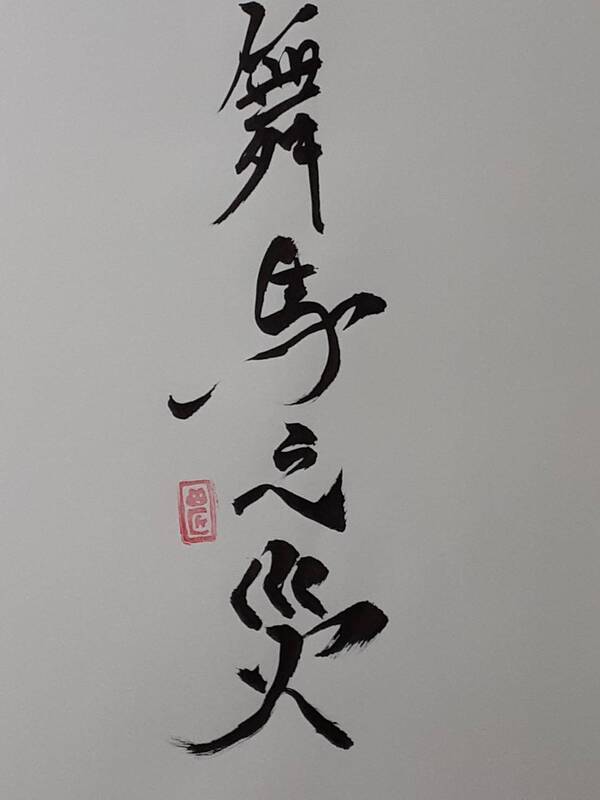 舞馬之災